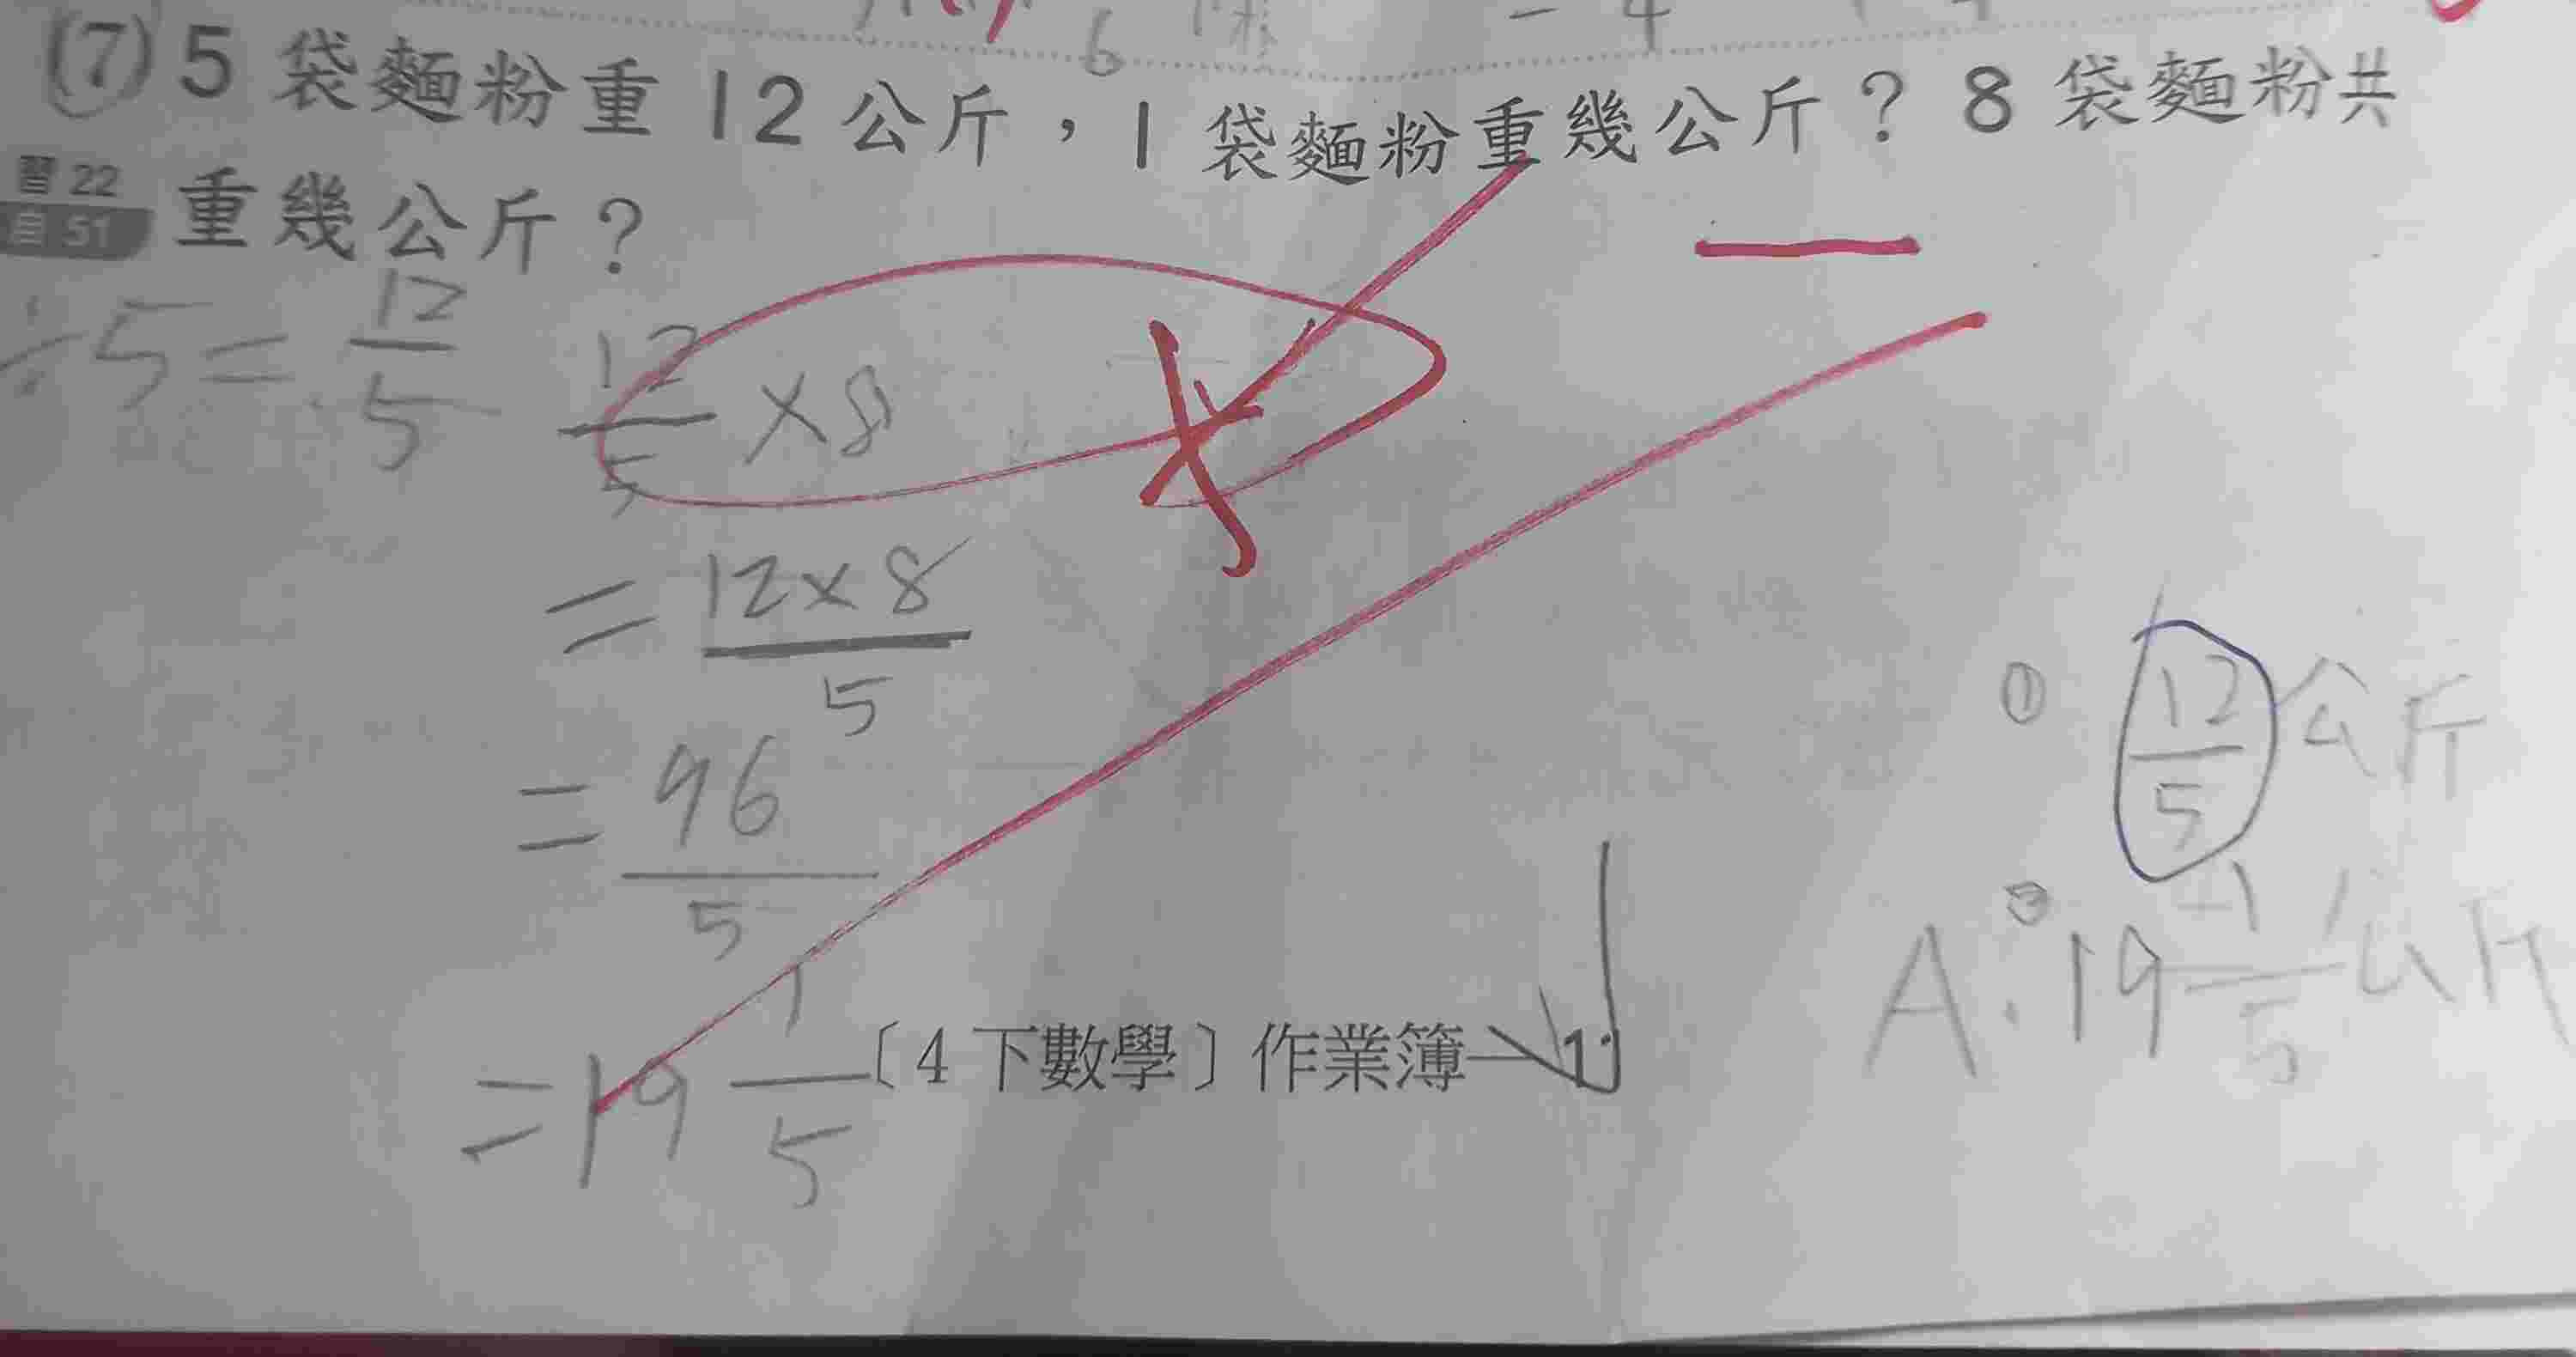 (7) 5 袋麵粉重 12 公斤，1 袋麵粉重幾公斤？8 袋麵粉共
習 22
自 51
重幾公斤？
÷5=12/5
12/5 ×8
= 12×8/5
= 96/5
= 19 1/5
① 12/5 公斤
② A. 19 1/5 公斤
〔4 下數學〕作業簿—1